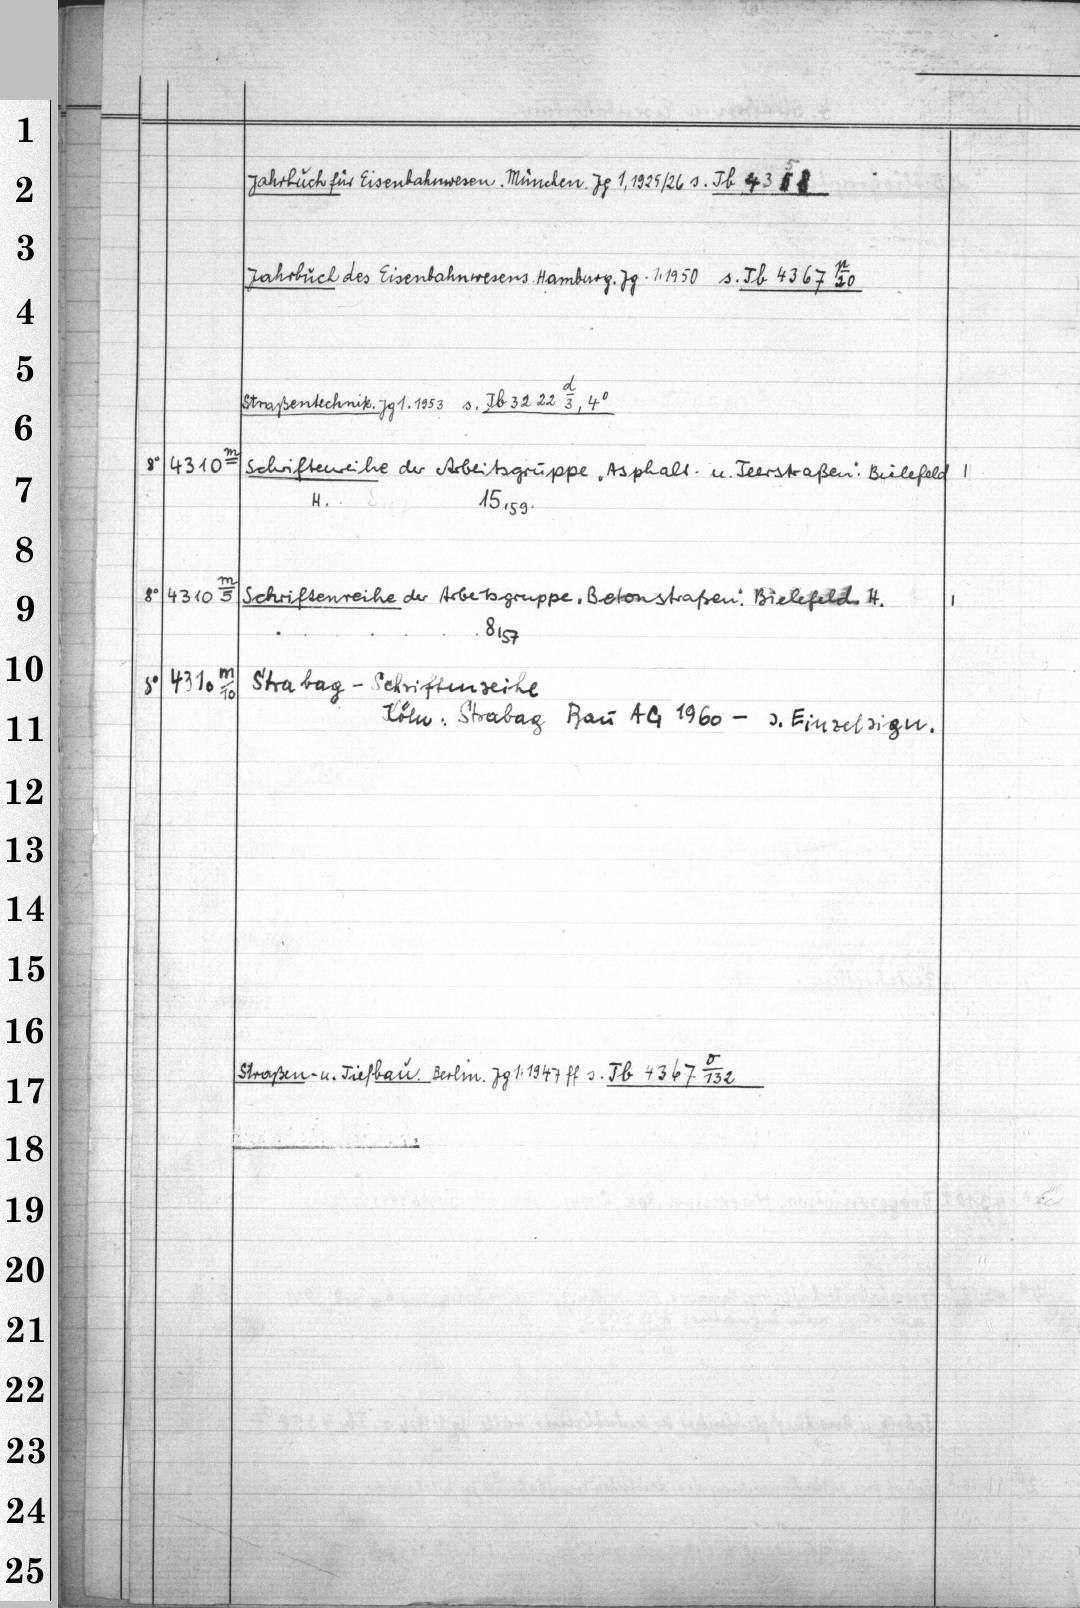 1
2
Jahrbuch für Eisenbahnwesen. München. Jg 1, 1925/26 s. Tb 43
3
Jahrbuch des Eisenbahnwesens Hamburg. Jg. 1. 1950 s. Tb 4367 n/20
4
5
Straßentechnik. Jg 1. 1953 s. Tb 3222 d/3, 4°
6
8° 4310 m Schriftenreihe der Arbeitsgruppe „Asphalt- u. Teerstraßen". Bielefeld 1
7
H. 15,59.
8
8° 4310 m/5 Schriftenreihe der Arbeitsgruppe „Betonstraßen". Bielefeld. H. 1
9
8,57
10
8° 4310 m/10 Strabag - Schriftenreihe
11
Köln: Strabag Bau AG 1960 - s. Einzelsign.
12
13
14
15
16
Straßen- u. Tiefbau. Berlin. Jg 1. 1947 ff s. Tb 4367 o/132
17
18
19
20
21
22
23
24
25